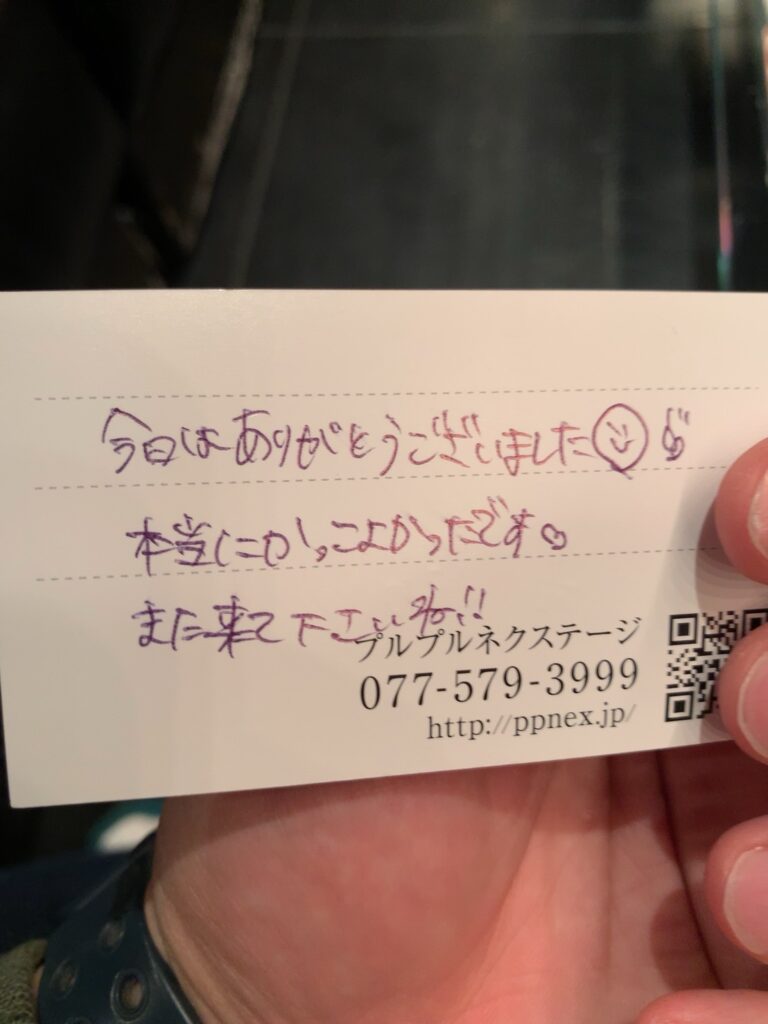 今日はありがとうございました
本当にかっこよかったです♡
また来て下さいね!!
プルプルネクステージ
077-579-3999
http://ppnex.jp/